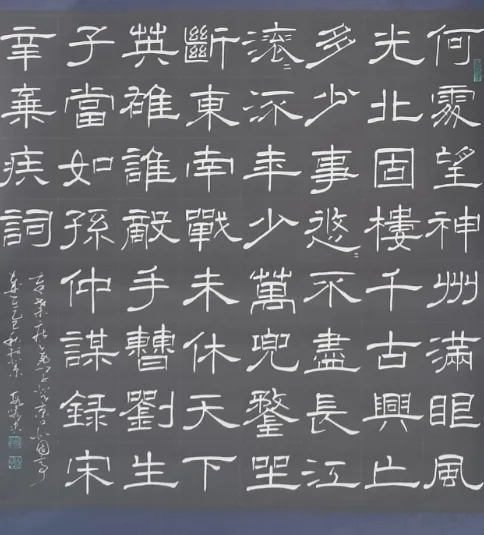 何處望神州滿眼風
光北固樓千古興亡
多少事悠〻不盡長江
滾〻流年少萬兜鍪坐
斷東南戰未休天下
英雄誰敵手曹劉生
子當如孫仲謀錄宋
辛棄疾詞